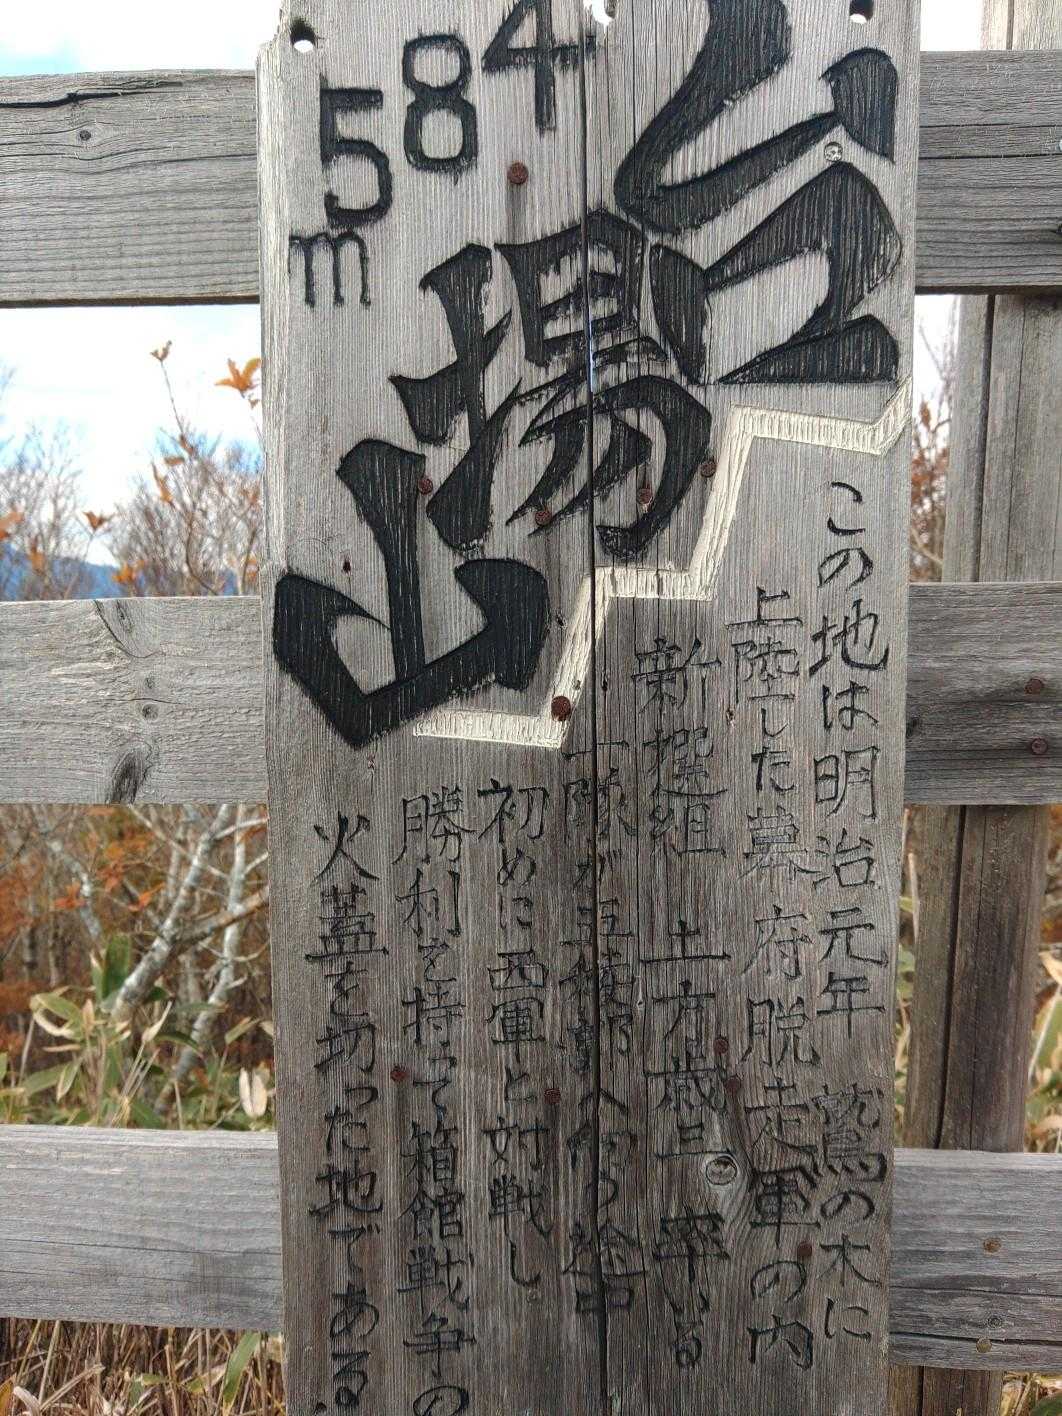 台場山
485m
この地は明治元年 鷲の木に
上陸した幕府脱走軍の内
新撰組 土方歳三 率いる
小隊が五稜郭へ向う途中
初めに西軍と対戦し
勝利を持って箱館戦争の
火蓋を切った地である.